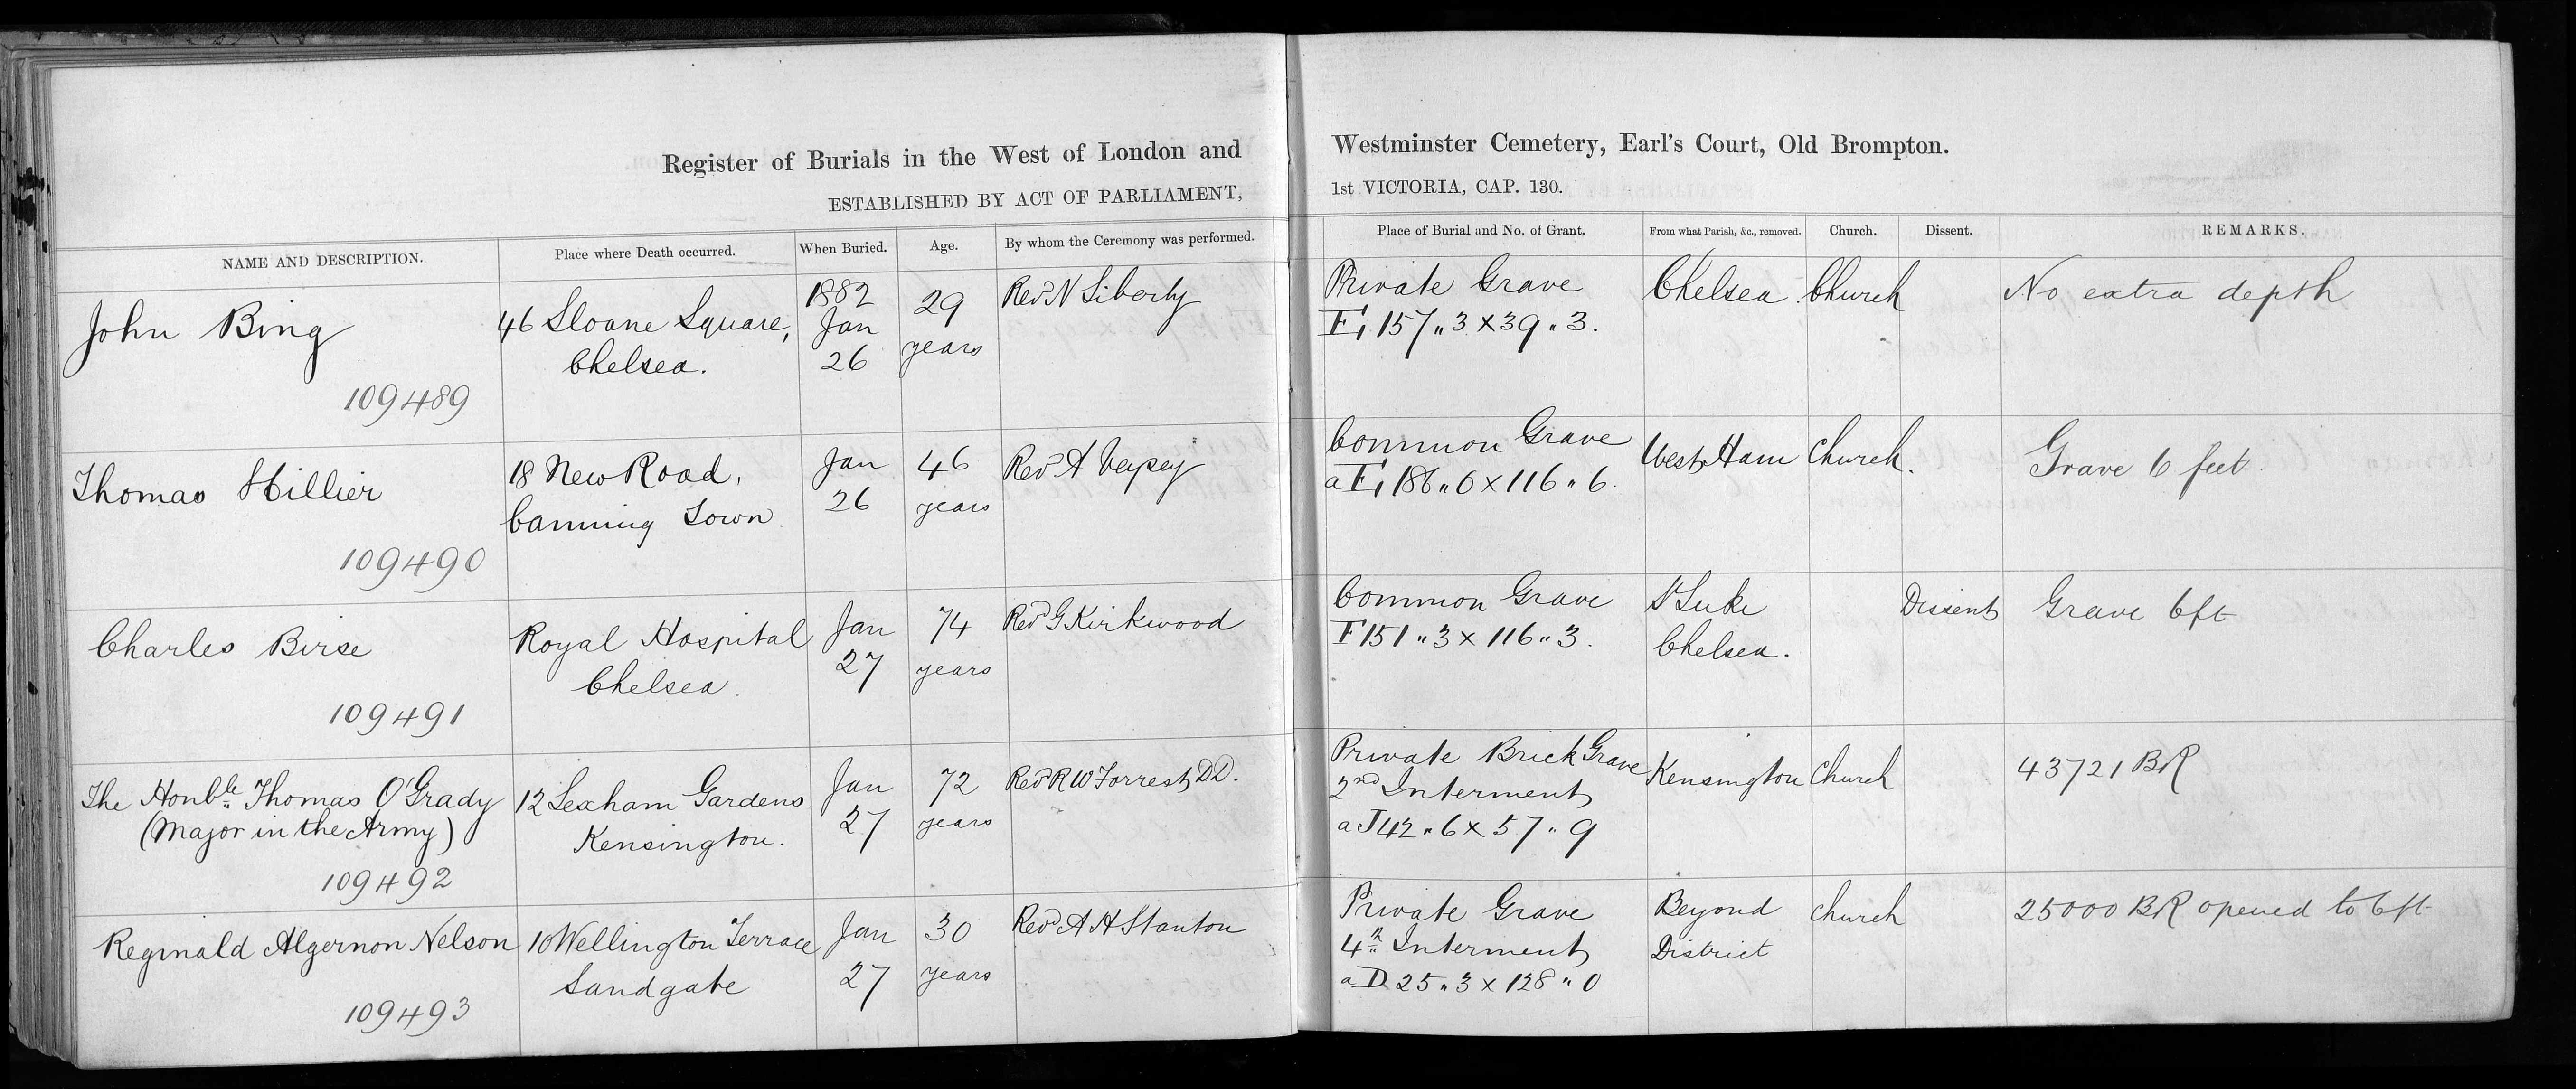 Register of Burials in the West of London and Westminster Cemetery, Earl's Court, Old Brompton.
ESTABLISHED BY ACT OF PARLIAMENT, 1st VICTORIA, CAP. 130.
NAME AND DESCRIPTION. Place where Death occurred. When Buried. Age. By whom the Ceremony was performed. Place of Burial and No. of Grant. From what Parish, &c., removed. Church. Dissent. REMARKS.
John Bing
109489
46 Sloane Square,
Chelsea.
1882
Jan
26
29
years
Revd N Liberty
Private Grave
F, 157 „ 3 x 39 „ 3.
Chelsea.
Church
No extra depth
Thomas Hillier
109490
18 New Road,
Canning Town.
Jan
26
46
years
Revd A Veysey
Common Grave
a F, 186 „ 6 x 116 „ 6.
West Ham
Church.
Grave 6 feet.
Charles Birse
109491
Royal Hospital
Chelsea.
Jan
27
74
years
Revd G Kirkwood
Common Grave
F 151 „ 3 x 116 „ 3.
St Luke
Chelsea.
Dissent
Grave 6ft
The Honble Thomas O'Grady
(Major in the Army)
109492
12 Lexham Gardens
Kensington.
Jan
27
72
years
Revd R W Forrest D.D.
Private Brick Grave
2nd Interment
a J 42 „ 6 x 57 „ 9
Kensington
Church
43721 BR
Reginald Algernon Nelson
109493
10 Wellington Terrace
Sandgate
Jan
27
30
years
Revd A H Stanton
Private Grave
4th Interment
a D 25 „ 3 x 128 „ 0
Beyond
District
Church
25000 BR opened to 6ft